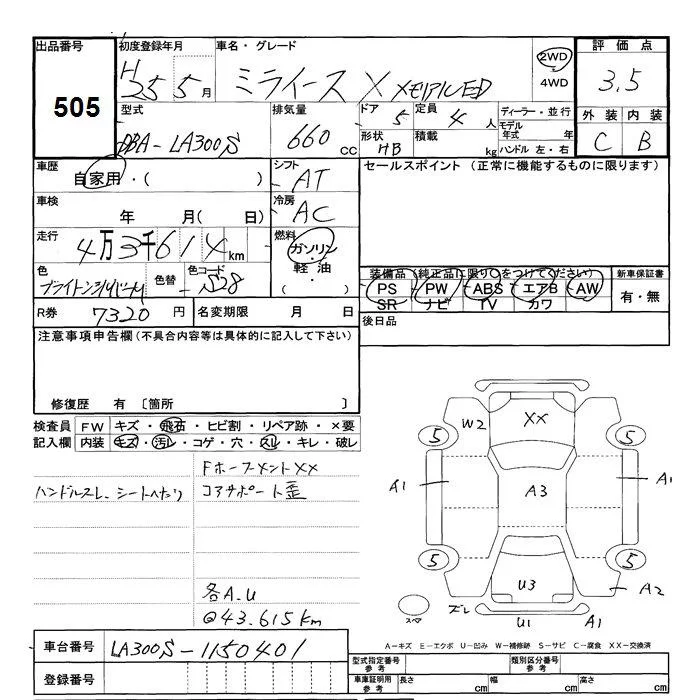 出品番号 初度登録年月 車名・グレード 評価点
505
H25 5月 ミライース X メモリアルED 2WD 4WD 3.5
型式 排気量 ドア 定員 ディーラー・並行 外装 内装
DBA-LA300S 660cc 5 4人 モデル年式 年 C B
形状 HB 積載 kg ハンドル 左・右
車歴 シフト セールスポイント (正常に機能するものに限ります)
自家用・( ) AT
車検 冷房
年 月( 日) AC
走行 燃料
4万3千614km ガソリン・軽油・( )
色 色替 色コード 装備品 (純正品に限り○をつけてください) 新車保証書
ブライトシルバーM - S28 PS PW ABS エアB AW 有・無
SR ナビ TV カワ
R券 7320円 名変期限 月 日 後日品
注意事項申告欄(不具合内容等は具体的に記入して下さい)
修復歴 有 〔箇所 〕
検査員 FW キズ・飛石・ヒビ割・リペア跡・×要
記入欄 内装 キズ・汚レ・コゲ・穴・スレ・キレ・破レ
FホーフメントXX
ハンドルスレ、シートヘたり コアサポート歪
各A.U
@43.615km
W2 XX
5 5
A1 A3 A1
5 5
U3 A2
スペ ズレ U1 A1
A-キズ E-エクボ U-凹み W-補修跡 S-サビ C-腐食 XX-交換済
車台番号 LA300S-1150401
型式指定番号 参考 類別区分番号 参考
登録番号
車庫証明用 参考 長さ cm 幅 cm 高さ cm